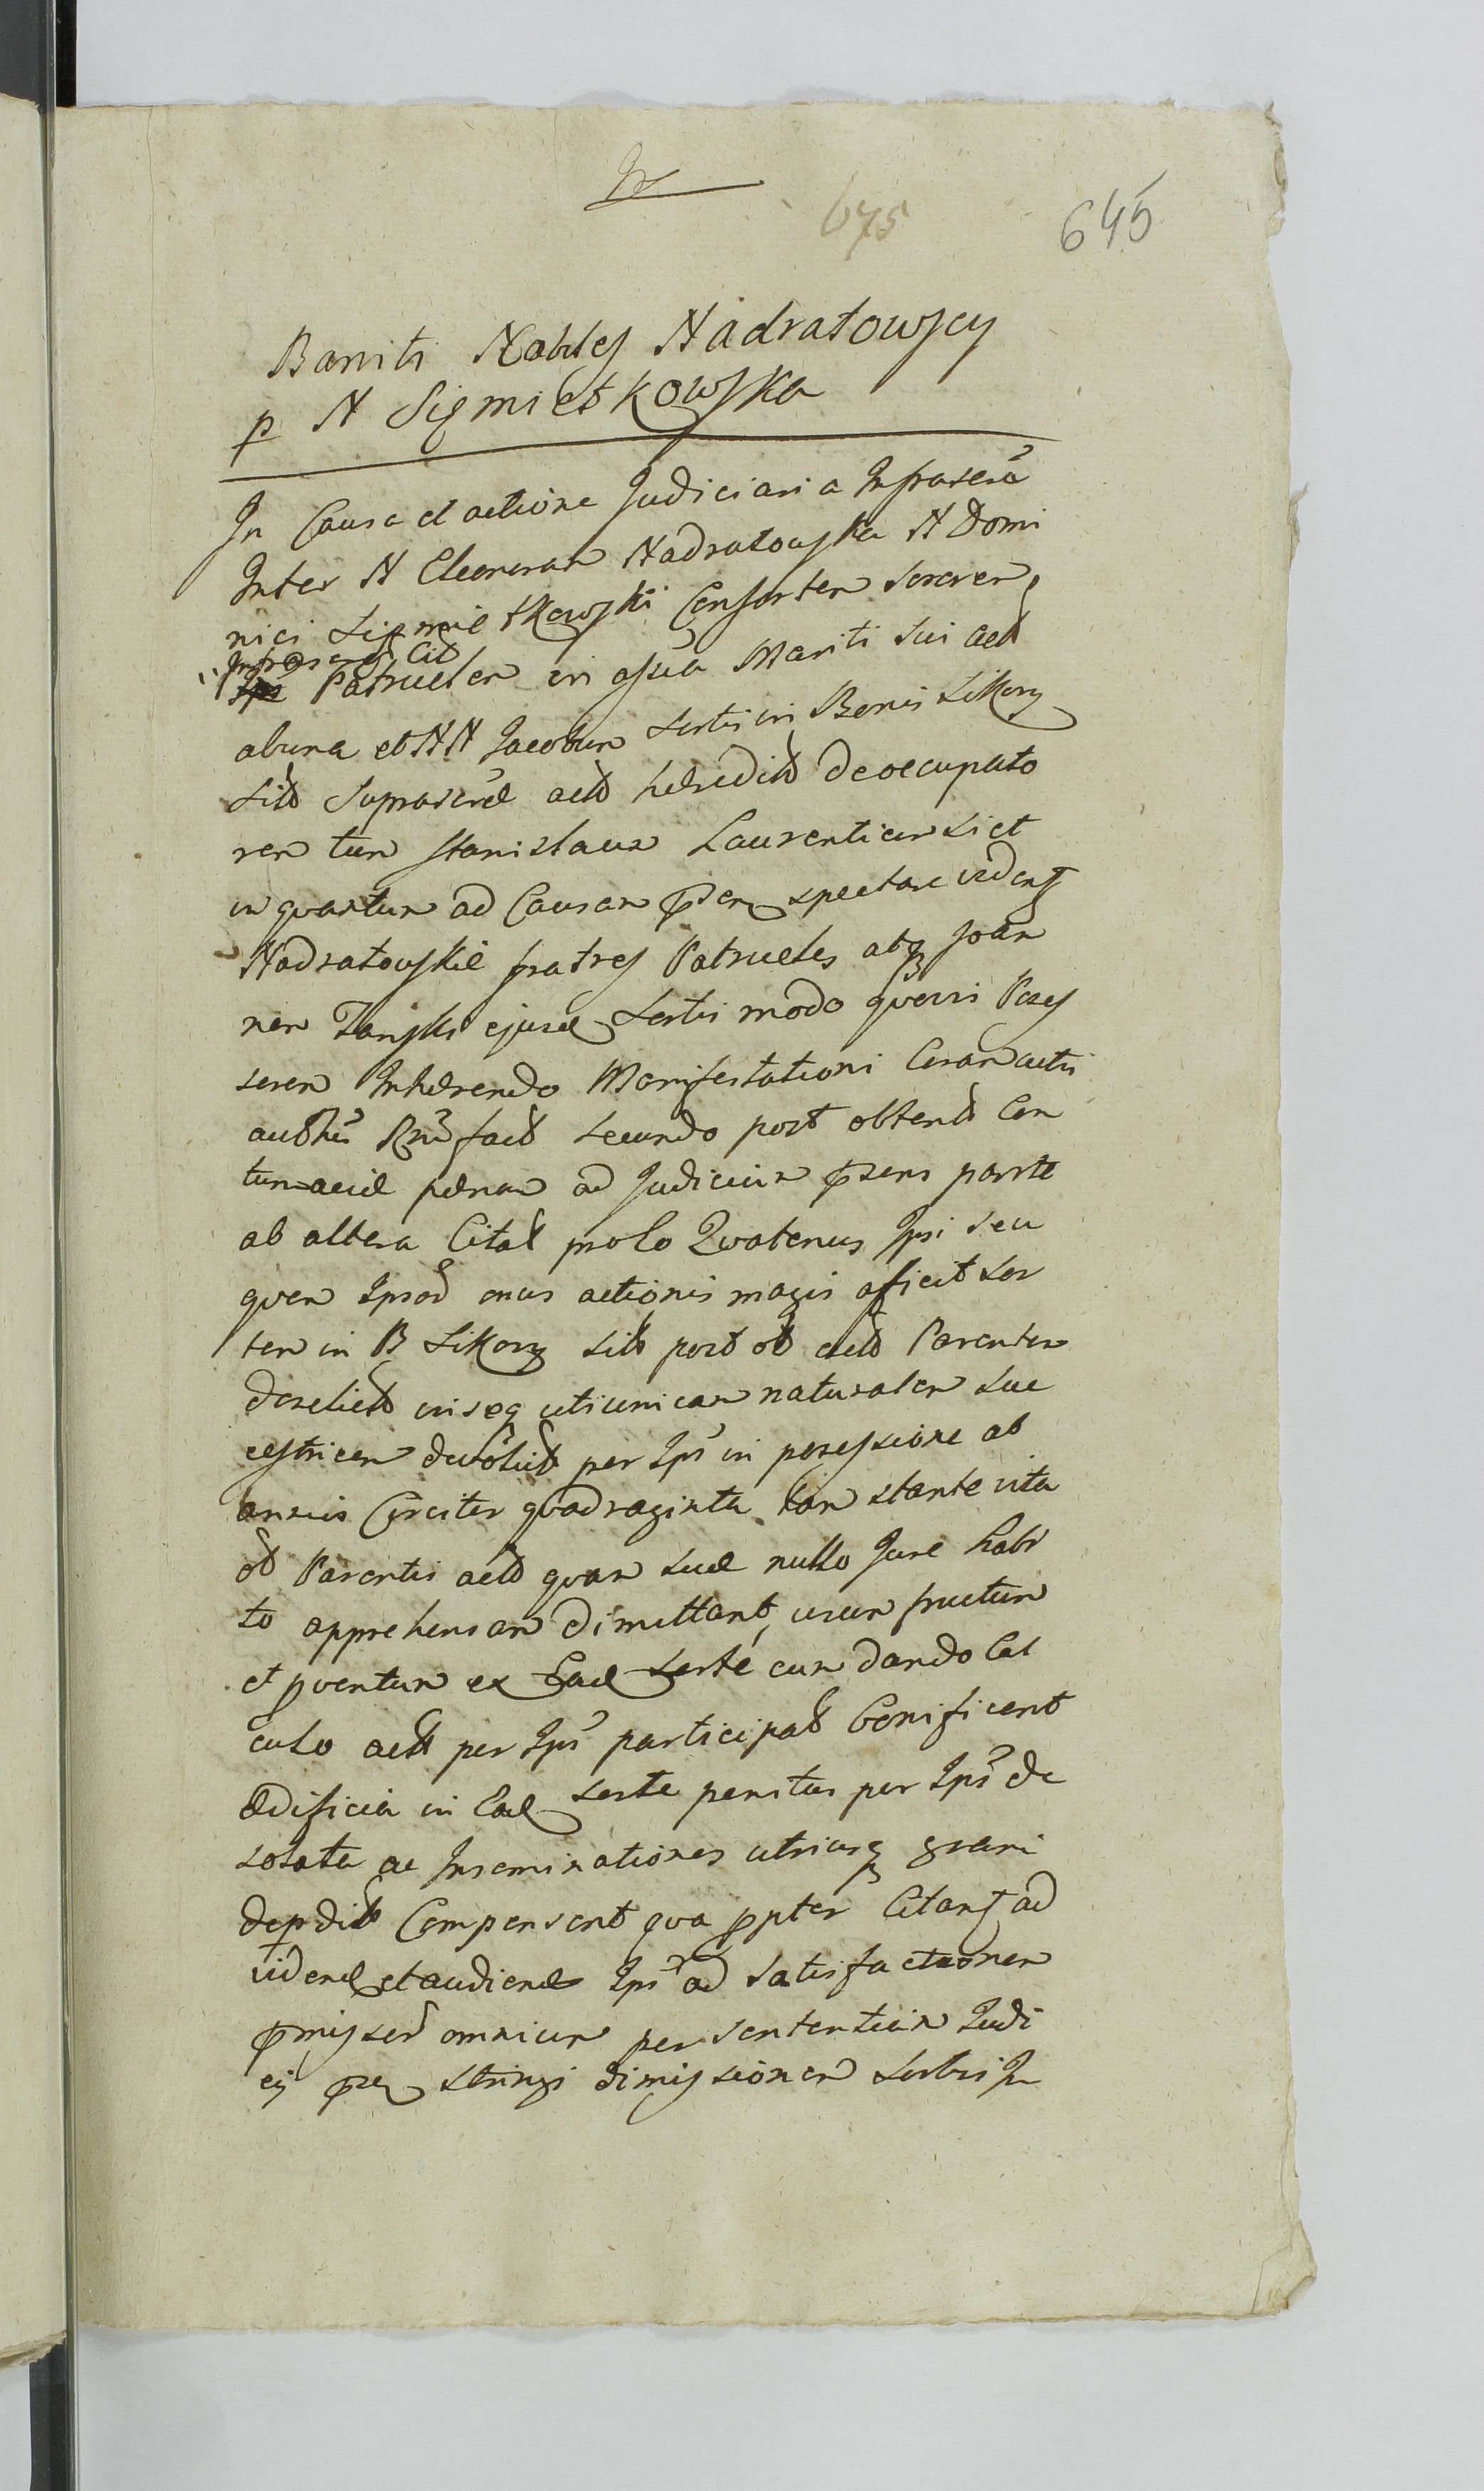 675 645
Baniti Nobiles Nadratowscy
p N Sięmiętkowska
In Causa et actione Judiciaria Infrascra
Inter N Eleonoram Nadratowska N Domi
nici Sięmiętkowski Consortem Sororem
Infrascr Cit
Patruelem in assña Mariti sui act
alunn et NN Jacobum Sortis in Bonis Sikory
sit Suprascrae act hæredit deoccupato
rem tum Stanislaum Laurentium si et
in quantum ad Causam pñtem spectare videns
Nadratowskie fratres Patrueles atq Joan
nem Zanski ejusd Sortis modo querri Poses
sorem Inhærendo Manifestationi Coram actis
authis Rnu fact secundo post obtent Con
tumaciæ pænam ad Judicium pñsens parte
ab altera Citat prolo Quatenus Ipsi seu
quem Ipsor onus actionis magis aficit Sor
tem in B Sikory sit post ob act Parentem
derelict inseq uti unicam naturalem suc
cestricem devolut per Ips in possessione ab
annis Circiter quadraginta tam stante vita
ob Parentis act quam sue nullo Jure habi
to apprehensam dimittant, usum fructum
et pventum ex Ead Sorte cum dando Cal
culo act per Ips participat bonificent
Ædificia in Ead Sorte penitus per Ips de
solata ac Inseminationes utriusq grani
depdit Compensent qua ppter Citant ad
videnđ et audienđ Ips ad satisfactionem
pmissor omnium per sententiam Judi
cij pñtis stringi dimissionem Sortis In